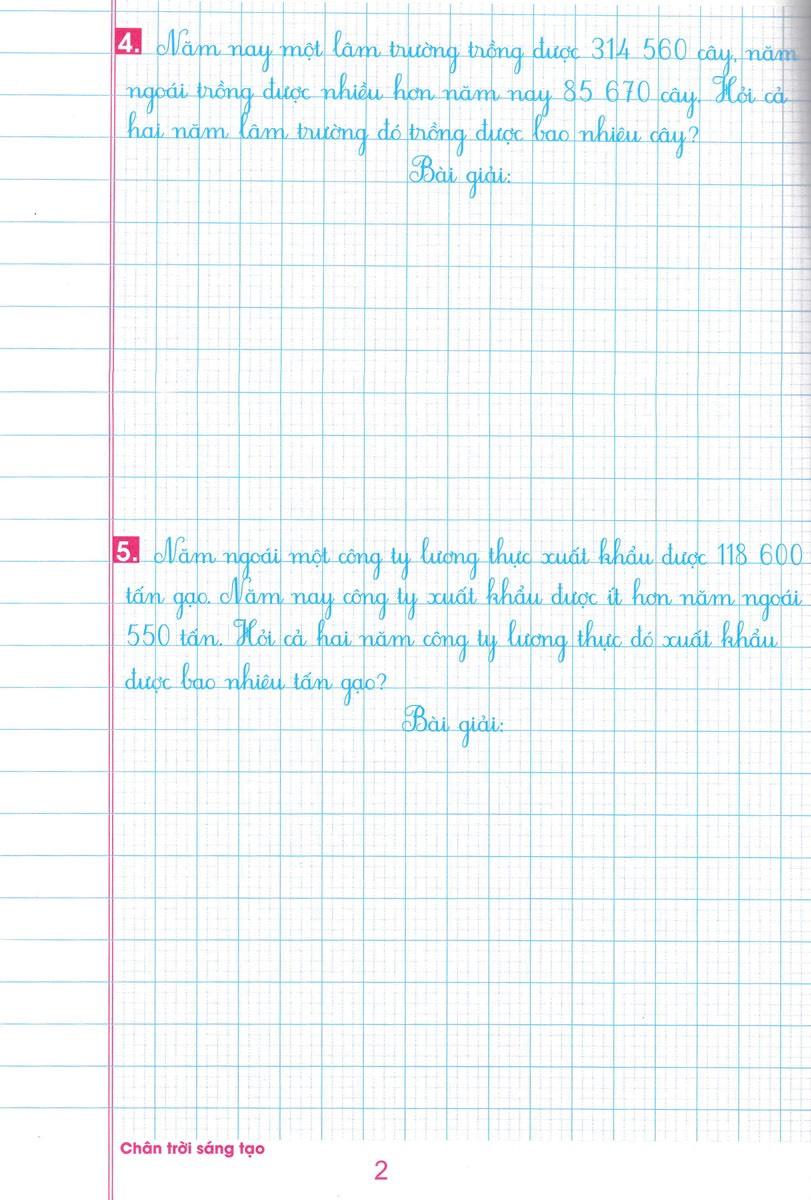 4. Năm nay một lâm trường trồng được 314 560 cây, năm
ngoái trồng được nhiều hơn năm nay 85 670 cây. Hỏi cả
hai năm lâm trường đó trồng được bao nhiêu cây?
Bài giải:
5. Năm ngoái một công ty lương thực xuất khẩu được 118 600
tấn gạo. Năm nay công ty xuất khẩu được ít hơn năm ngoái
550 tấn. Hỏi cả hai năm công ty lương thực đó xuất khẩu
được bao nhiêu tấn gạo?
Bài giải:
Chân trời sáng tạo
2